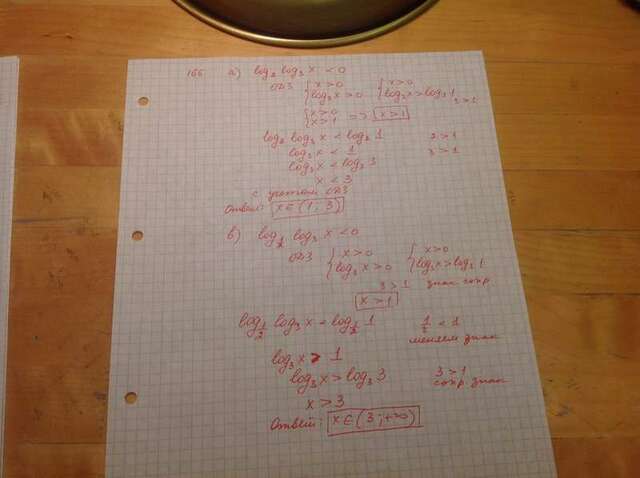 166 а) log₂ log₃ x < 0
ОДЗ { x > 0 { x > 0
log₃ x > 0 log₃ x > log₃ 1
3 > 1
{ x > 0
x > 1 => x > 1
log₂ log₃ x < log₂ 1 2 > 1
log₃ x < 1 3 > 1
log₃ x < log₃ 3
x < 3
с учетом ОДЗ
Ответ: x ∈ (1; 3)
в) log_{1/2} log₃ x < 0
ОДЗ { x > 0 { x > 0
log₃ x > 0 log₃ x > log₃ 1
3 > 1 знак сохр.
x > 1
log_{1/2} log₃ x < log_{1/2} 1 1/2 < 1
меняем знак
log₃ x > 1
log₃ x > log₃ 3 3 > 1
сохр. знак
x > 3
Ответ: x ∈ (3; +∞)